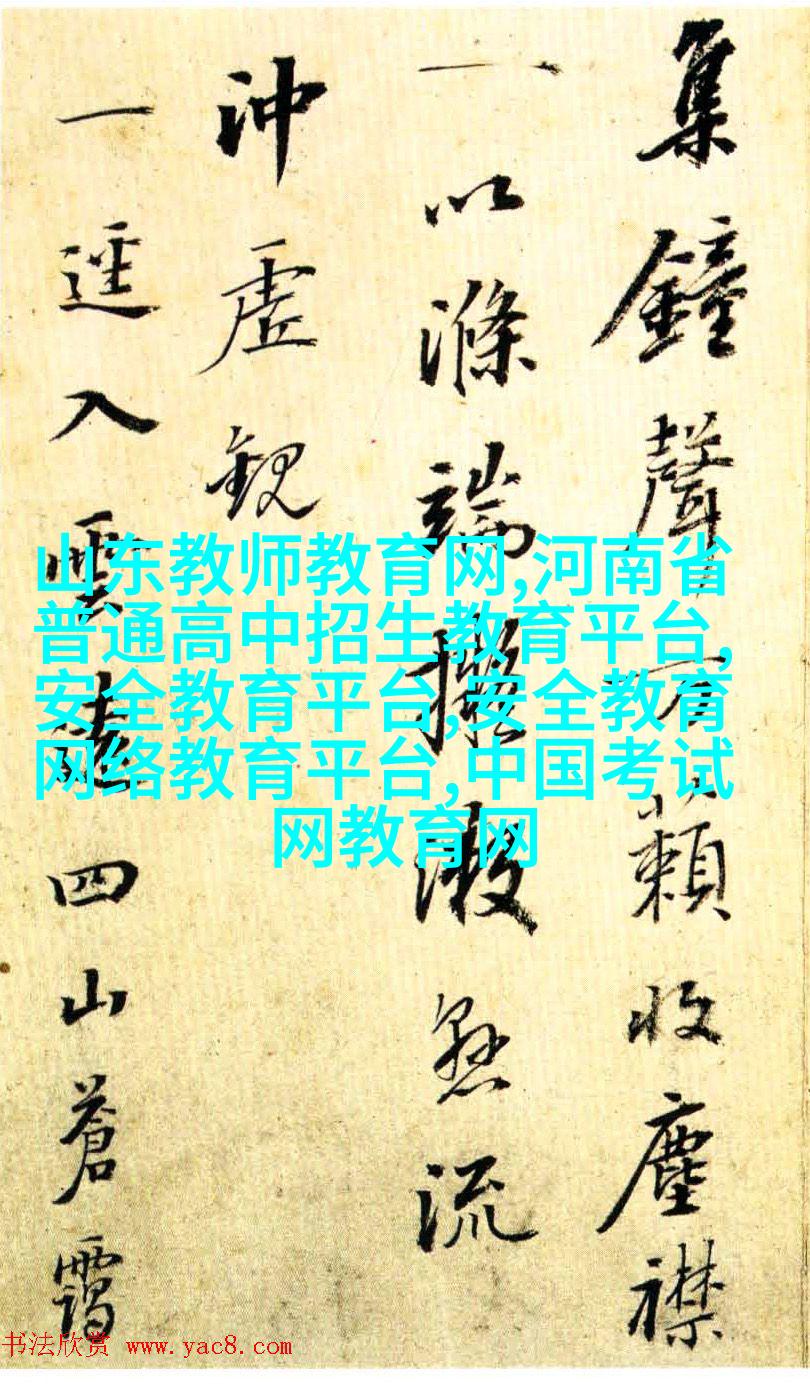 集鐘聲万籟收塵襟
一以滌端擬漱悬流
沖虛観
一逕入雲遠四山蒼靄
山东教师教育网,河南省
普通高中招生教育平台,
安全教育平台,安全教育
网络教育平台,中国考试
网教育网
书法欣赏 www.yac8.com